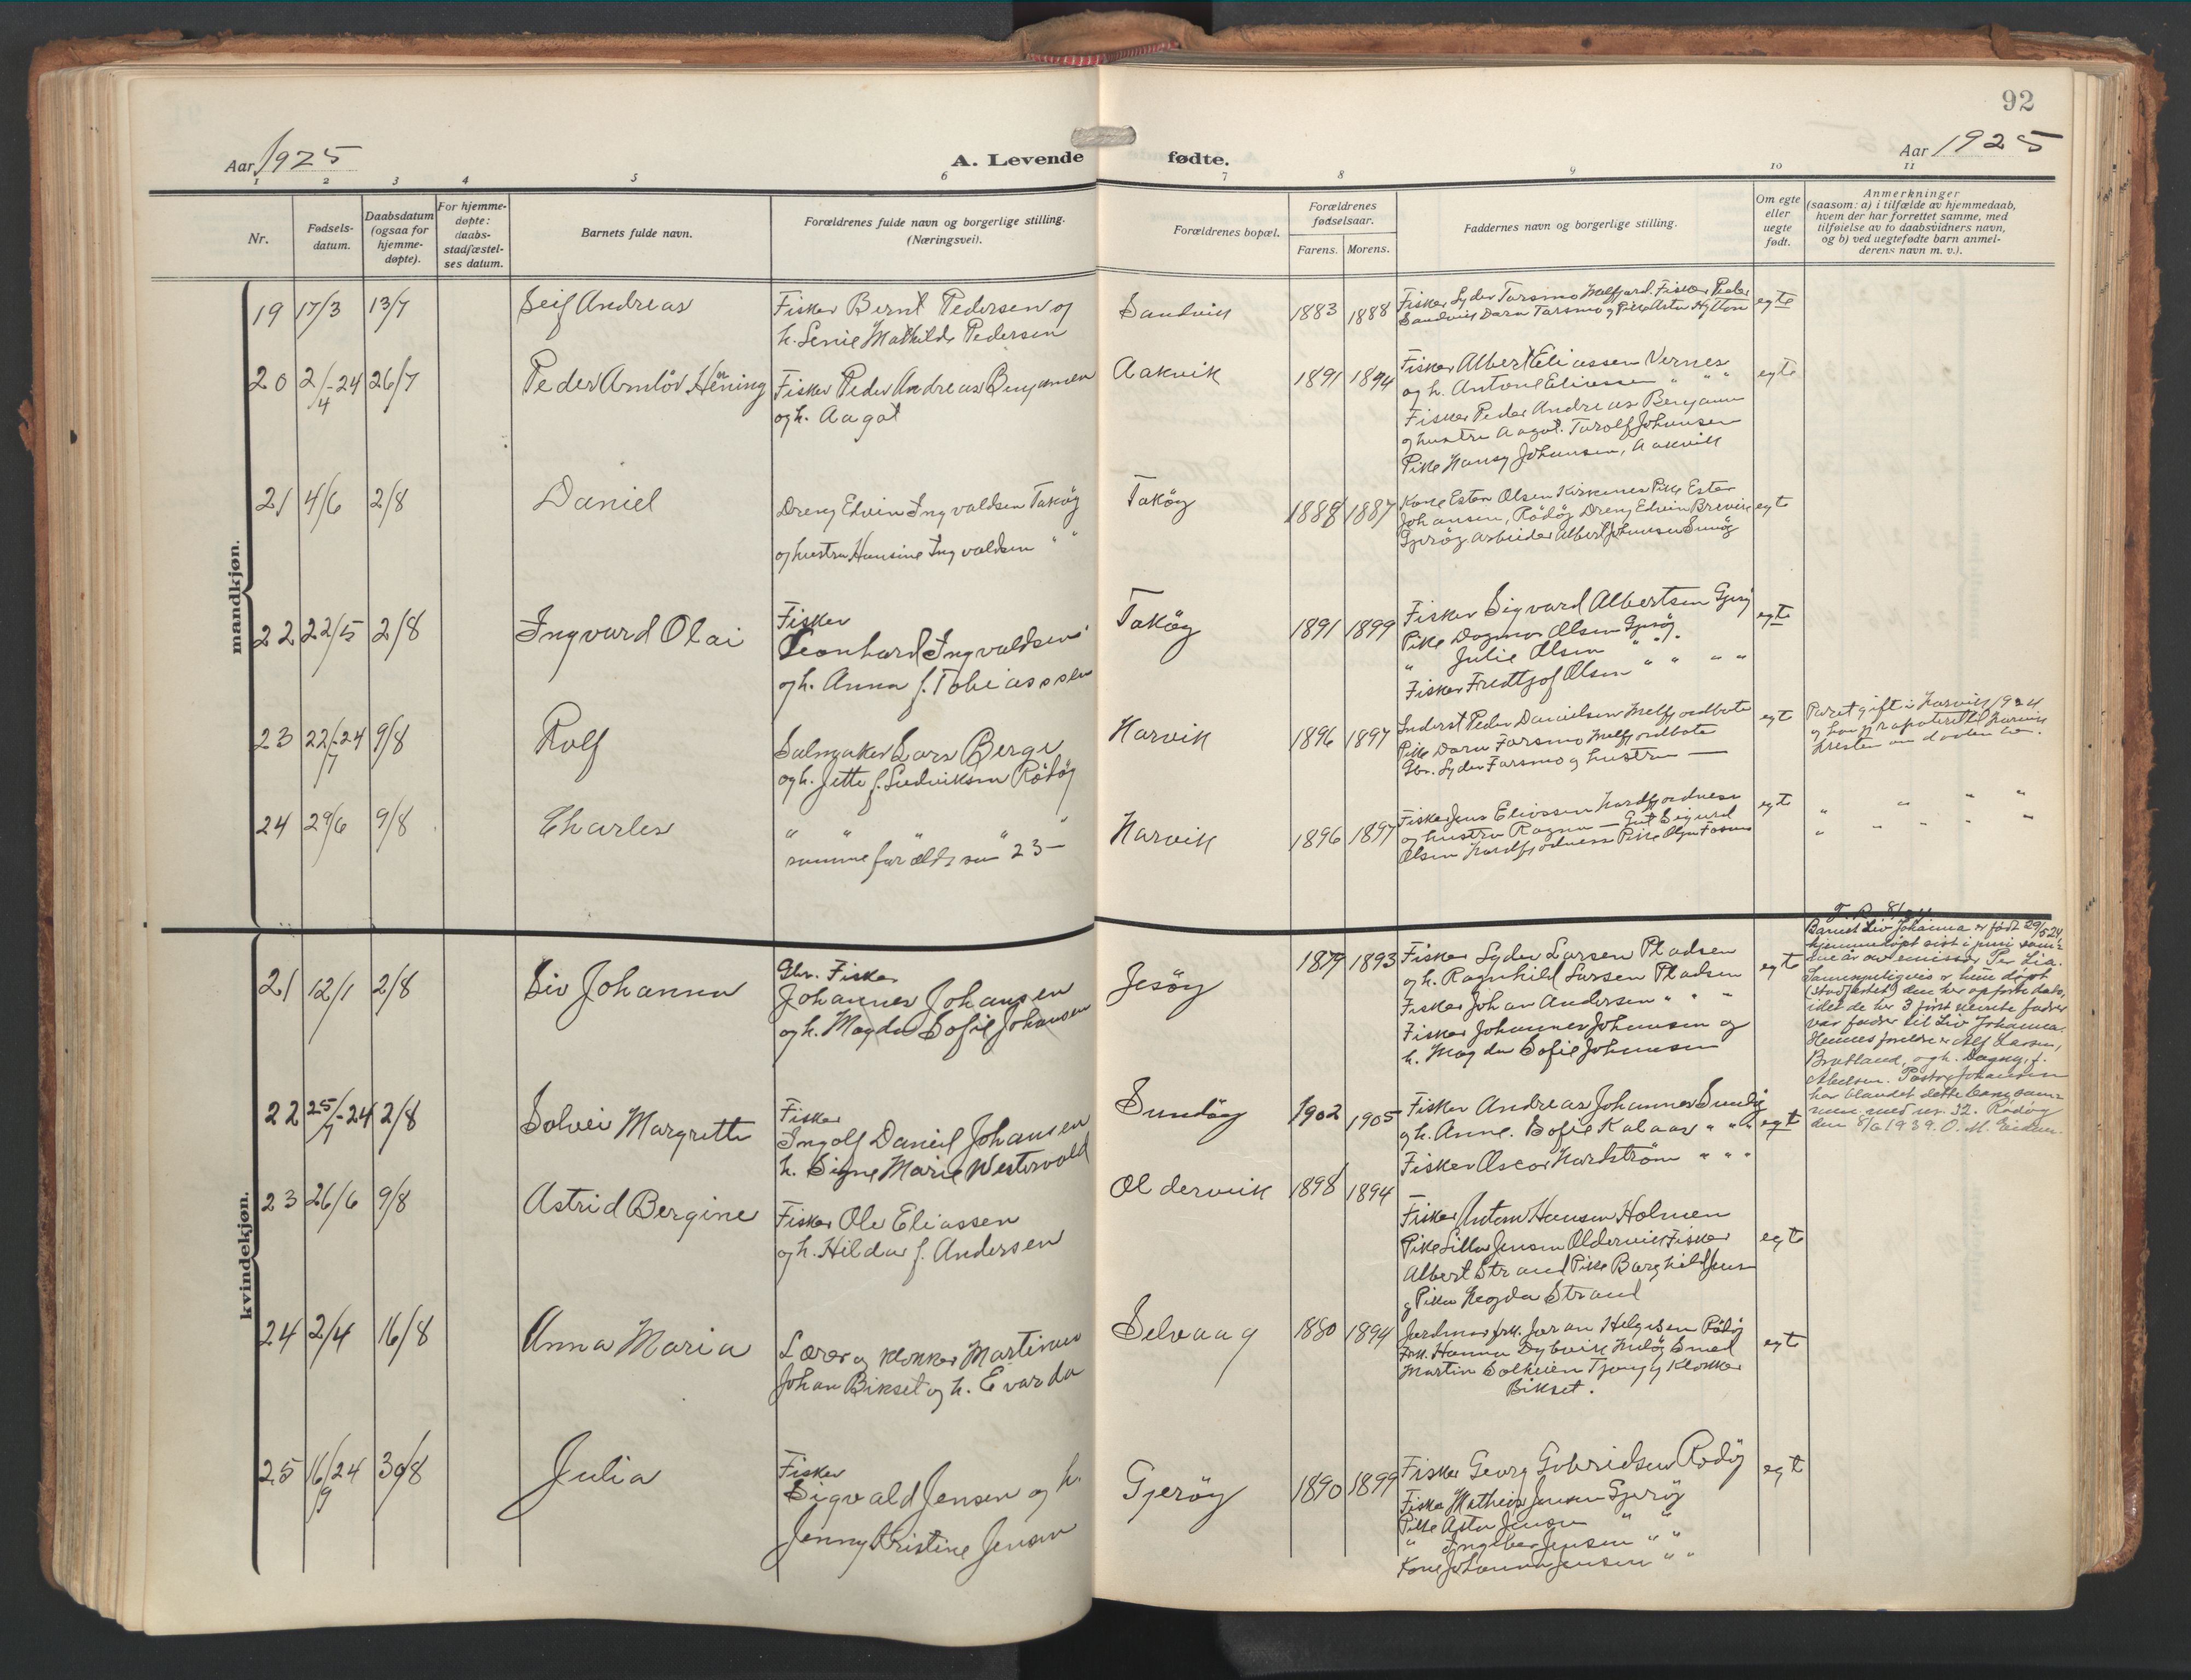 92
Aar 1925
A. Levende fødte.
Aar 1925
1 2 3 4 5 6 7 8 9 10 11
Nr.
Fødsels-
datum.
Daabsdatum
(ogsaa for
hjemme-
døpte).
For hjemme-
døpte:
daabs-
stadfæstel-
ses datum.
Barnets fulde navn.
Forældrenes fulde navn og borgerlige stilling.
(Næringsvei).
Forældrenes bopæl.
Forældrenes
fødselsaar.
Farens. Morens.
Faddernes navn og borgerlige stilling.
Om egte
eller
uegte
født.
Anmerkninger
(saasom: a) i tilfælde av hjemmedaab,
hvem der har forrettet samme, med
tilføielse av to daabsvidners navn,
og b) ved uegtefødte barn anmel-
derens navn m. v.).
mandkjøn.
19 17/3 13/7 Leif Andreas
Fisker Bernt Pedersen og
h. Lenie Mathilde Pedersen
Sandvik 1883 1888
Fisker Lyder Tarsmo Melfjord. Fisker Peder
Sandvik Dara Tarsmo og Pike Asta
egte
20 2/4-24 26/7 Peder Arnlöv Hening
Fisker Peder Andreas Benjamin
og h. Aagot
Aakvik 1891 1894
Fisker Albert Eliassen Vernes
og h. Antone Eliassen " " "
Fisker Peder Andreas Benjamin
og hustru Aagot. Johansen
Pike Johansen, Aakvik
egte
21 4/6 2/8 Daniel
Dreng Edvin Ingvaldsen Taköy
og hustru Hansine Ingvaldsen " "
Taköy 1888 1887
Kone Ester Olsen Kirkenes Pike Ester
Johansen, Rödöy Dreng Edvin Brevik
Gjeröy. Arbeider Albert Johansen Sunöy
egte
22 22/5 2/8 Ingvard Olai
Fisker
Leonhard Ingvaldsen
og h. Anna f. Tobiasssen
Taköy 1891 1899
Fisker Sigvard Albertsen Gjeröy
Pike Dagmar Olsen Gjeröy
" Julie Olsen " "
Fisker Fredtjof Olsen " " " "
egte
23 22/7-24 9/8 Rolf
Salmaker Lars Berge
og h. Jette f. Ludviksen Rödöy
Narvik 1896 1897
Inderst Peder Danielsen Melfjordbotn
Pike Dara Farsmo Melfjordbotn
Gbr. Lyder Farsmo og hustru —
egte
Paret gift i Narvik 1924
og har jeg rapoterttil Narvik
Presten om daaben her.
24 29/6 9/8 Charles
" " " " "
samme forældre som 23 —
Narvik 1896 1897
Fisker Jens Eliassen Nordfjordnes
og hustru Ragna — Gut Sigurd
Olsen Nordfjordnes Pike Olga
egte
" " " "
" " " " "
kvindekjøn.
21 12/1 2/8 Liv Johanna
Gbr. Fisker
Johannes Johansen
og h. Magda Sofie Johansen
Jesöy 1879 1893
Fisker Lyder Larsen Pladsen
og h. Ragnhild Larsen Pladsen
Fisker Johan Andersen " " "
Fisker Johannes Johansen og
h. Magda Sofie Johansen
egte
Barnet Liv Johanna er født 29/5 24,
hjemmedøpt sist i juni sam-
me år av emissær Per Lia.
Sannsynligvis er hun døpt
(stadfestet) den her opførte dato,
idet de her 3 først nevnte fadrer
var fadrer til Liv Johanna.
Hennes foreldre er Alf Larsen,
Bratland, og h. Dagny, f.
Abelsen. Pastor Johansen
har blandet dette barn sam-
men med nr. 32. Rödöy
den 8/6 1939. O. M. Eidem.
22 25/7-24 2/8 Solvei Margrethe
Fisker
Ingolf Daniel Johansen
h. Signe Marie Westervold
Sundöy 1902 1905
Fisker Andreas Johannes Sundöy
og h. Anne. Sofie Kalaas " "
Fisker Oscar Nordström " " "
egt
23 26/6 9/8 Astrid Bergine
Fisker Ole Eliassen
og h. Hilda f. Andersen
Oldervik 1898 1894
Fisker Anton Hansen Holmen
Pike Lilla Jensen Oldervik Fisker
Albert Strand Pike Borghild Jensen
og Pike Magda Strand
egte
24 2/4 16/8 Anna Maria
Lærer og klokker Martinus
Johan Bikset og h. Evarda
Selvaag 1880 1894
Jordmor frk. Helgesen Rödöy
Frk. Hanna Dybvik Smed
Martin Solheien Tjong og Klokker
Bikset.
egte
25 16/9 24 30/8 Julia
Fisker
Sigvald Jensen og h.
Jenny Kristine Jensen
Gjeröy 1890 1899
Fisker Georg Gabrielsen Rödöy
Fisker Mathias Jensen Gjeröy
Pike Asta Jensen " "
" Ingebor Jensen " "
Kone Johanna Jensen " "
egte